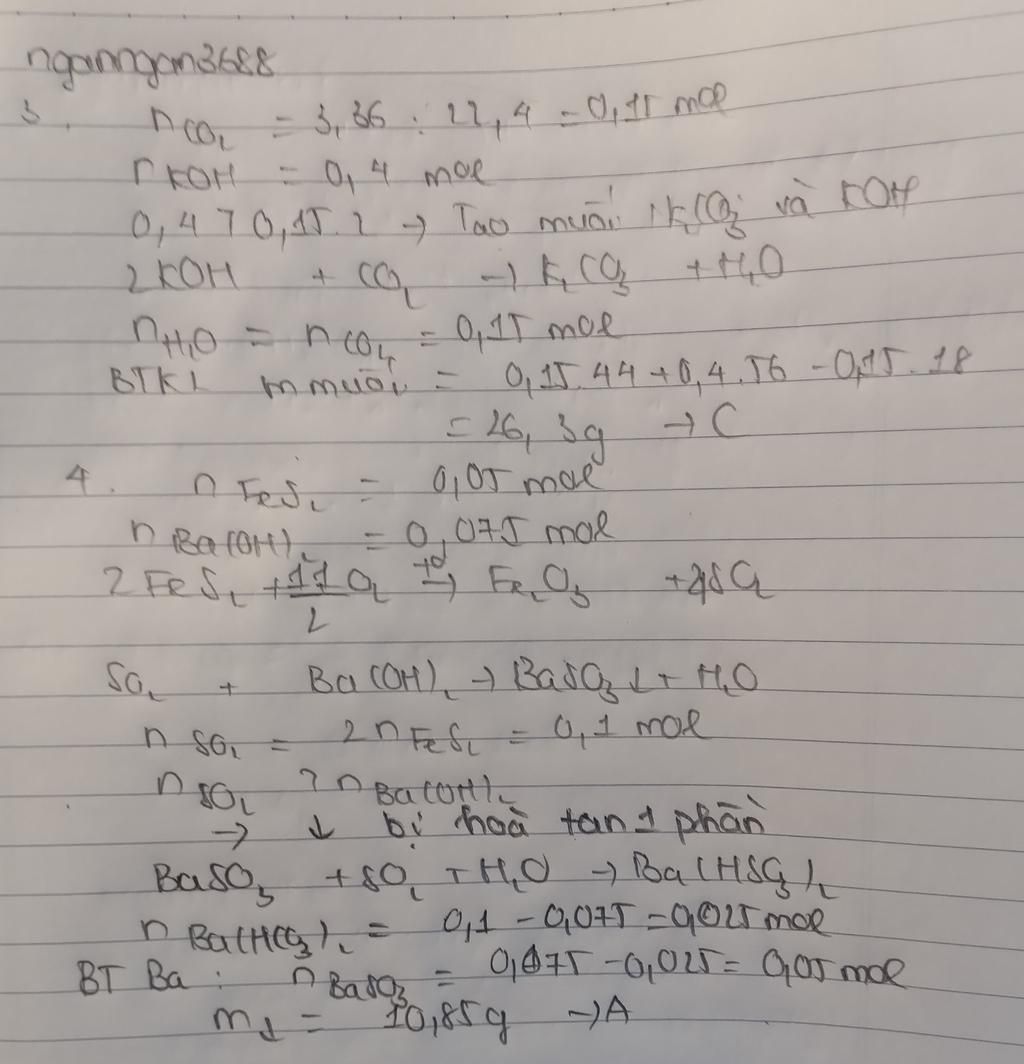 nganngan3688
3. nCO₂ = 3,36 : 22,4 = 0,15 mol
nKOH = 0,4 mol
0,4 > 0,15.2 → Tạo muối K₂CO₃ và KOH
2KOH + CO₂ → K₂CO₃ + H₂O
nH₂O = nCO₂ = 0,15 mol
BTKL m muối = 0,15.44 + 0,4.56 - 0,15.18
= 26,3g → C
4. nFeS₂ = 0,05 mol
nBa(OH)₂ = 0,075 mol
2FeS₂ + 11/2 O₂ →(t°) Fe₂O₃ + 4SO₂
SO₂ + Ba(OH)₂ → BaSO₃↓ + H₂O
nSO₂ = 2nFeS₂ = 0,1 mol
nSO₂ > nBa(OH)₂
→ ↓ bị hoà tan 1 phần
BaSO₃ + SO₂ + H₂O → Ba(HSO₃)₂
nBa(HCO₃)₂ = 0,1 - 0,075 = 0,025 mol
BT Ba : nBaSO₃ = 0,075 - 0,025 = 0,05 mol
m↓ = 10,85g → A